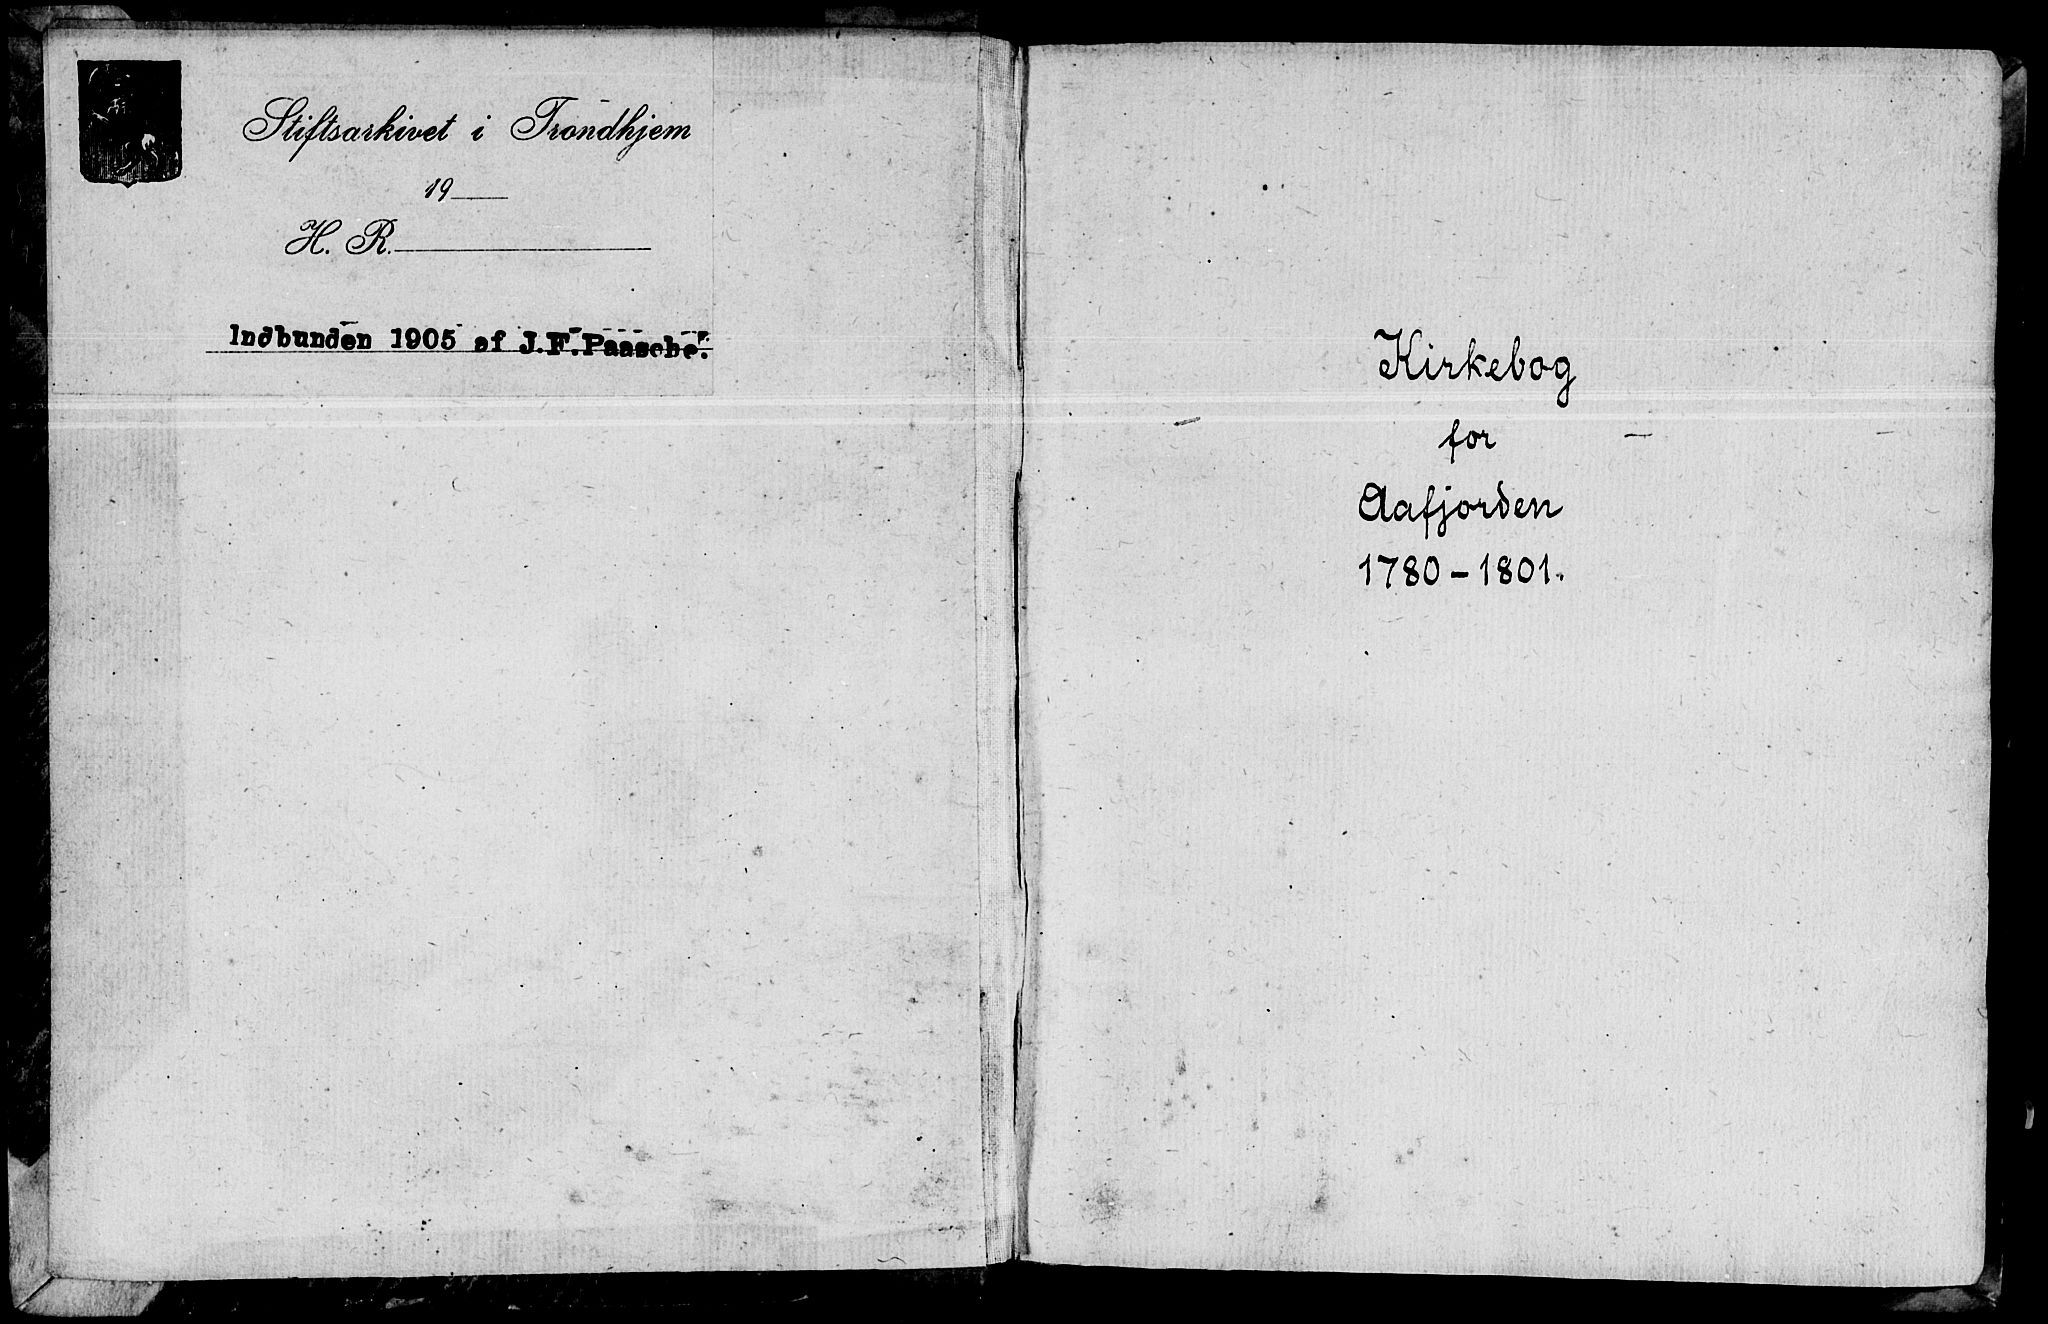 Stiftsarkivet i Trondhjem
19
H. R.
Indbunden 1905 af J.F.Paasche.
Kirkebog
for
Aafjorden
1780-1801.